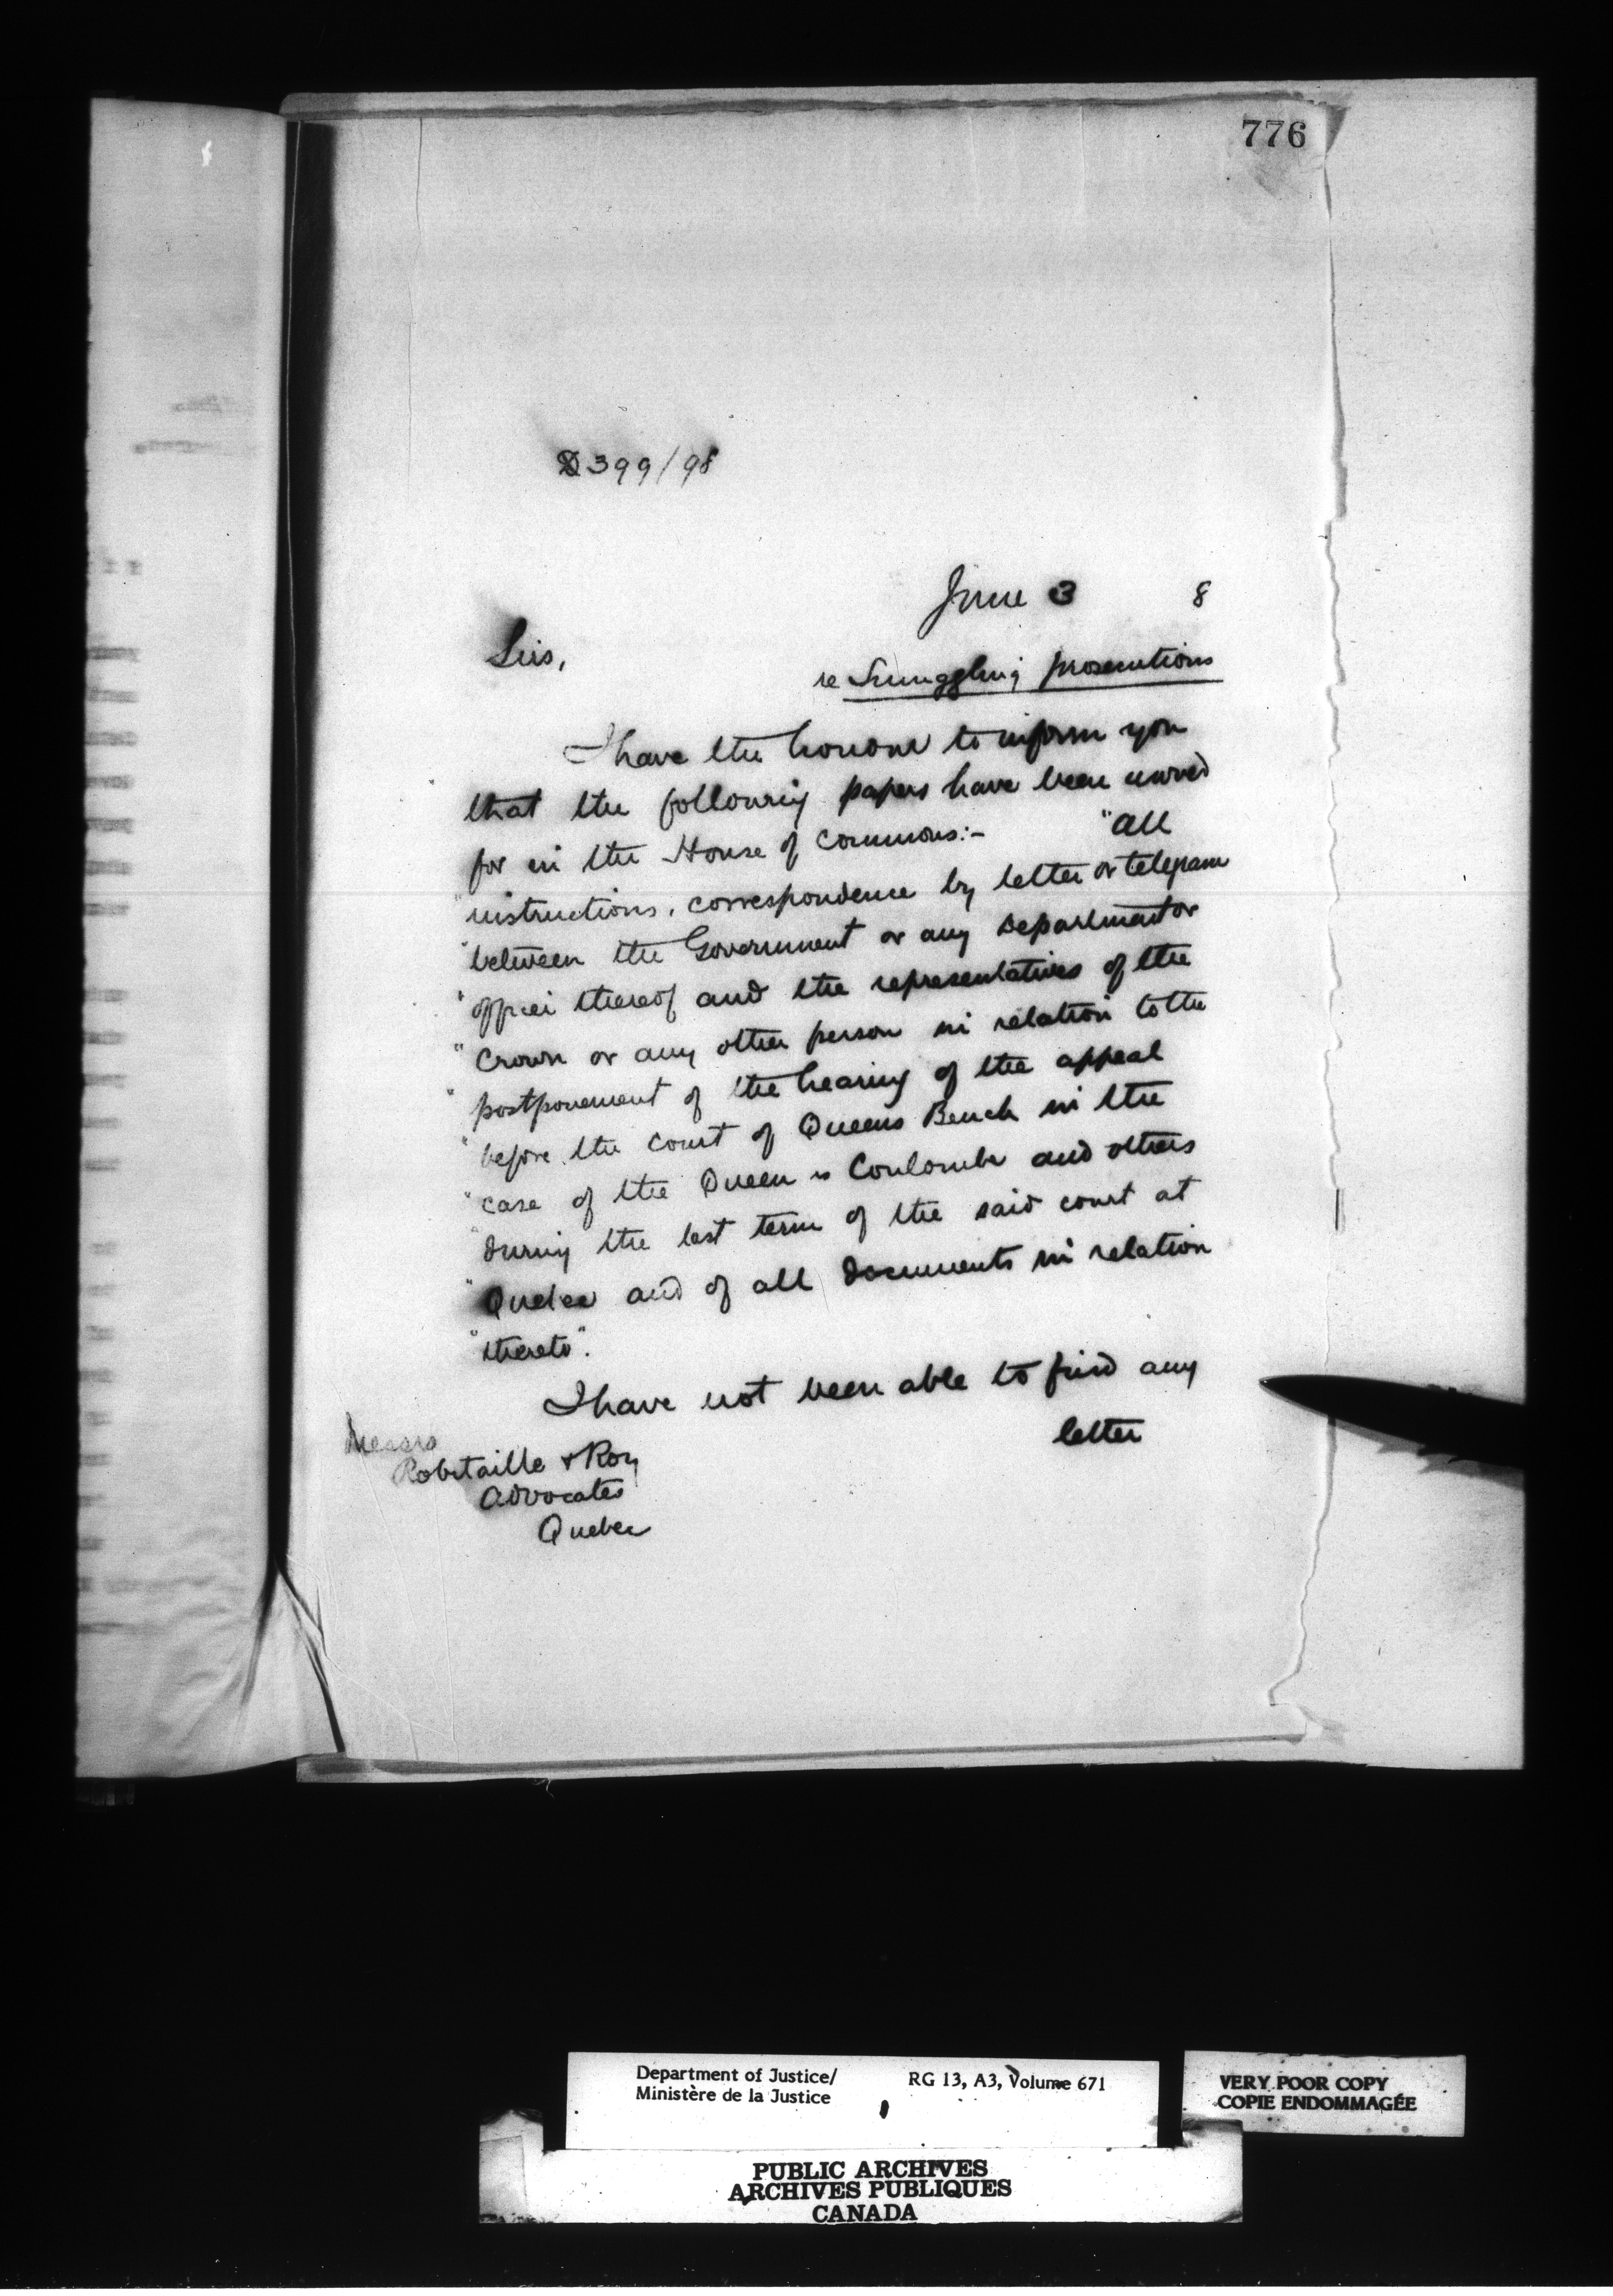 776
D399/98
June 3 8
Sirs,
re Smuggling prosecutions
I have the honour to inform you
that the following papers have been moved
for in the House of Commons:- "All
"instructions, correspondence by letter or telegram
"between the Government or any department or
"officer thereof and the representatives of the
"Crown or any other person in relation to the
"postponement of the hearing of the appeal
"before the court of Queens Bench in the
"case of the Queen vs Coulombe and others
"during the last term of the said court at
"Quebec and of all documents in relation
"thereto".
I have not been able to find any
letter
Messrs
Robitaille & Roy
Advocates
Quebec
Department of Justice/
Ministère de la Justice
RG 13, A3, Volume 671
VERY POOR COPY
COPIE ENDOMMAGÉE
PUBLIC ARCHIVES
ARCHIVES PUBLIQUES
CANADA